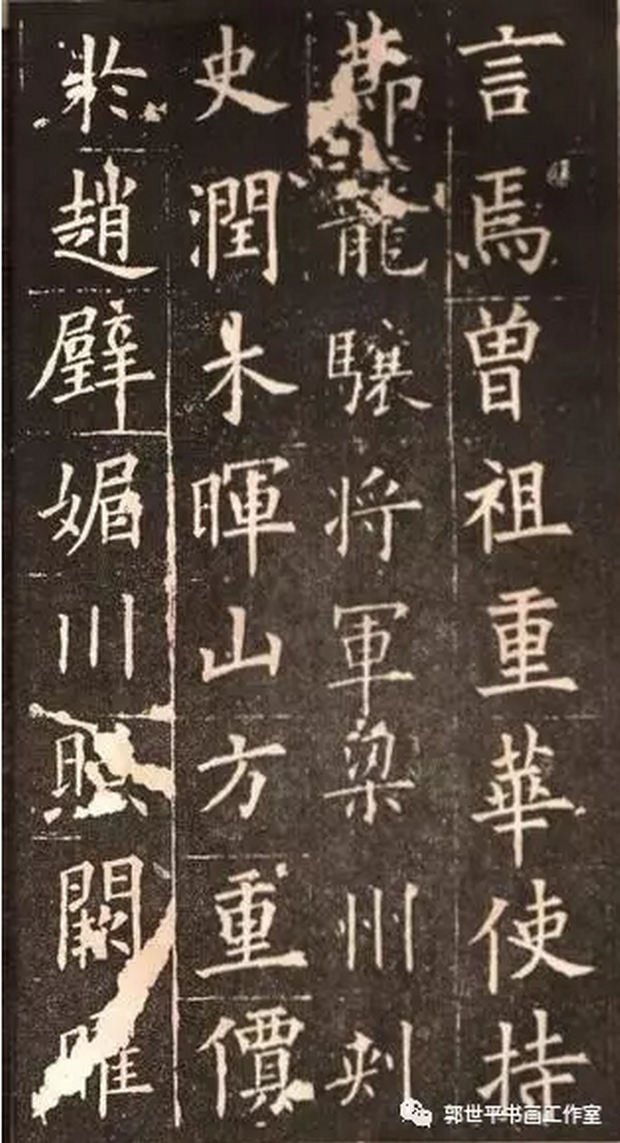 言焉曾祖重華使持
節龍驤将軍梁州刺
史潤木暉山方重價
於趙璧媚川照闕曜
郭世平书画工作室